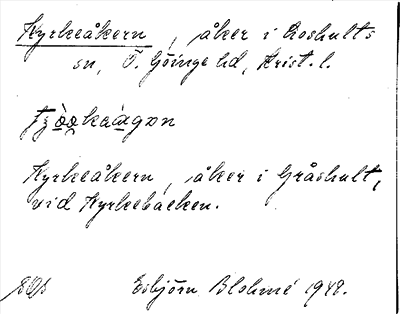 Kyrkeåkern, åker i Boshults
sn, Ö. Göinge hd, Krist. l.
Kyrkeåkern, åker i Gråshult,
vid Kyrkebacken.
Esbjörn Blohmé 1942.